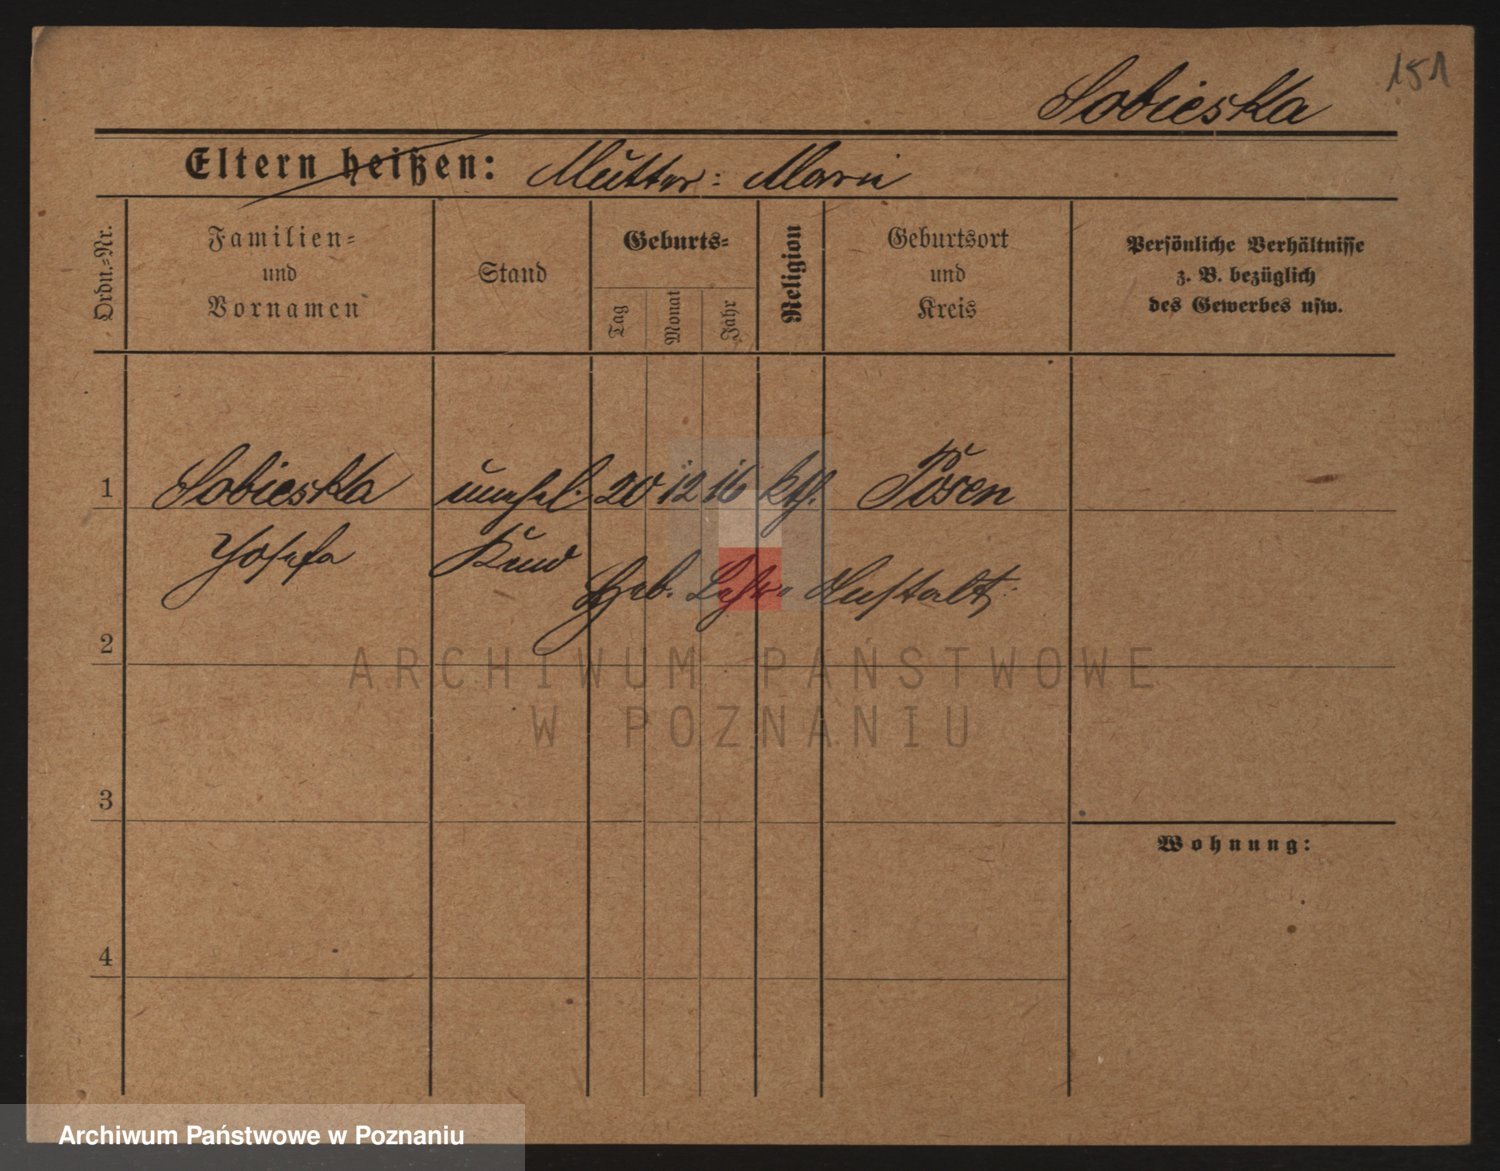 151
Sobieska
Eltern heißen: Mutter: Marie
Ordn.-Nr.
Familien-
und
Vornamen
Stand
Geburts-
Tag
Monat
Jahr
Religion
Geburtsort
und
Kreis
Persönliche Verhältnisse
z. B. bezüglich
des Gewerbes usw.
1 Sobieska unehel. 20 12 16 kth. Posen
Josefa Kind
Heb. Lehr- Anstalt
2
3
Wohnung:
4
ARCHIWUM PAŃSTWOWE
W POZNANIU
Archiwum Państwowe w Poznaniu